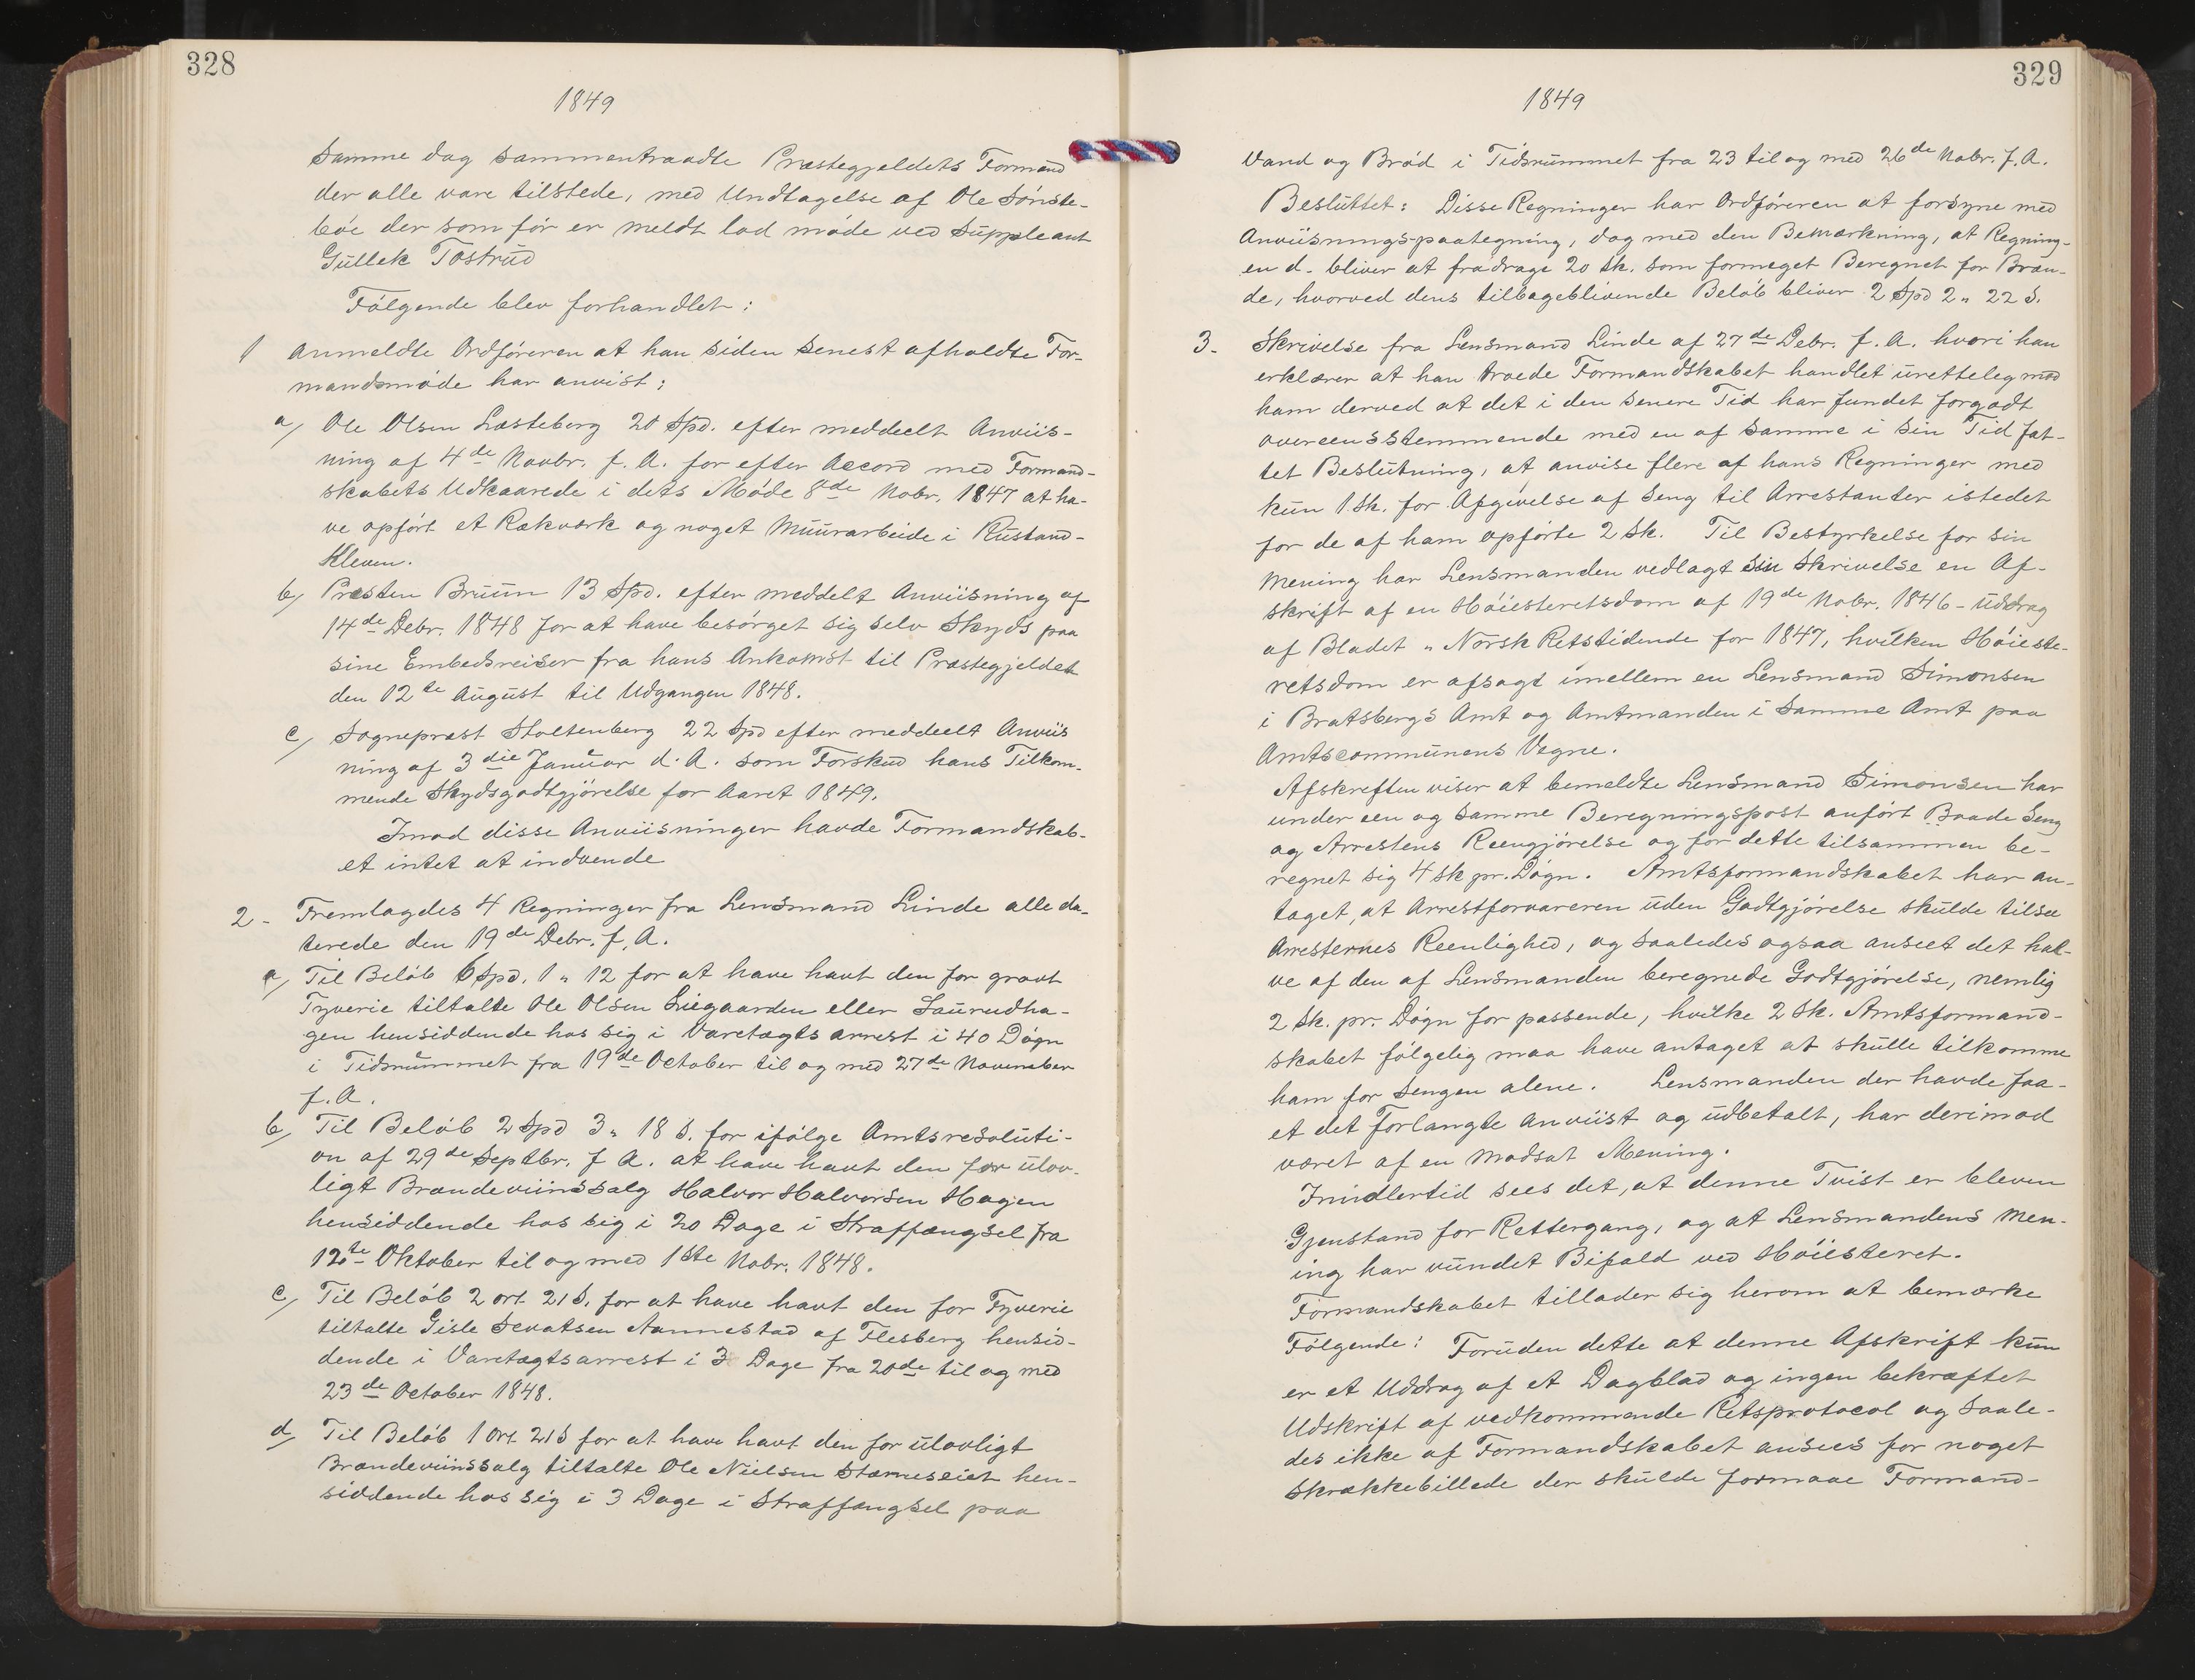 328
1849
Samme dag sammentraadte Præstegjeldets Formænd
der alle vare tilstede, med Undtagelse af Ole Sønste-
bøe der som før er meldt lod møde ved Suppleant
Gullek Tostrud
Følgende blev forhandlet:
1 Anmeldte Ordføreren at han siden senest afholdte For-
mandsmøde har anvist:
a, Ole Olsen Lasteberg 20 Spd. efter meddeelt Anviis-
ning af 4de Novbr. f. A. for efter Accord med Formand-
skabets Udkaarede i dets Møde 8de Nobr. 1847 at ha-
ve opført et Rækværk og noget Muurarbeide i Rustand-
Kleven.
b, Præsten Bruun 13 Spd. efter meddelt Anviisning af
14de Debr. 1848 for at have besørget sig selv Skyds paa
sine Embedsreiser fra hans Ankomst til Præstegjeldet
den 12te August til Udgangen 1848.
c, Sognepræst Stoltenberg 22 Spd efter meddeelt Anviis
ning af 3die Januar d. A. som Forskud hans Tilkom-
mende Skydsgodtgjørelse for Aaret 1849.
Imod disse Anviisninger havde Formandskab-
et intet at indvende
2 - Fremlagdes 4 Regninger fra Lensmand Linde alle da-
terede den 19de Debr. f. A.
a, Til Beløb 6 Spd. 1 „ 12 for at have havt den for grovt
Tyverie tiltalte Ole Olsen Liegaarden eller Laurudha-
gen hensiddende hos sig i Varetægts arrest i 40 Døgn
i Tidsrummet fra 19de October til og med 27de November
f. A.
b, Til Beløb 2 Spd 3 „ 18 s. for ifølge Amtsresoluti-
on af 29de Septbr. f A. at have havt den for ulov-
ligt Brændeviinssalg Halvor Halvorsen Hagen
hensiddende hos sig i 20 Dage i Straffængsel fra
12te Oktober til og med 1ste Nobr. 1848.
c, Til Beløb 2 ort 21 s. for at have havt den for Tyverie
tiltalte Gisle Sevatsen Aannestad af Flesberg hensid-
dende i Varetægtsarrest i 3 Dage fra 20de til og med
23de October 1848.
d, Til Beløb 1 Ort 21 s for at have havt den for ulovligt
Brændeviinssalg tiltalte Ole Nielsen Stærneseiet hen-
siddende hos sig i 3 Dage i Straffængsel paa
329
1849
Vand og Brød i Tidsrummet fra 23 til og med 26de Nobr. f. A.
Besluttet: Disse Regninger har Ordføreren at forsyne med
Anviisningspaategning, dog med den Bemærkning, at Regning-
en d. bliver at fradrage 20 sk. som formeget Beregnet for Bræn-
de, hvorved dens tilbageblivende Beløb bliver 2 Spd 2 „ 22 s.
3. Skrivelse fra Lensmand Linde af 27de Debr. f. A. hvori han
erklærer at han troede Formandskabet handlet uretteleg mod
ham derved at det i den senere Tid har fundet forgodt
overeensstemmende med en af samme i sin Tid fat-
tet Beslutning, at anvise flere af hans Regninger med
kun 1 Sk. for Afgivelse af Seng til Arrestanter istedet
for de af ham opførte 2 Sk. Til Bestyrkelse for sin
Mening har Lensmanden vedlagt sin Skrivelse en Af-
skrift af en Høiesteretsdom af 19de Nobr. 1846 - uddrag
af Bladet „ Norsk Retstidende for 1847, hvilken Høieste-
retsdom er afsagt imellem en Lensmand Simonsen
i Bratsbergs Amt og Amtmanden i Samme Amt paa
Amtscommunens Vegne.
Afskreften viser at bemeldte Lensmand Simonsen har
under een og samme Beregningspost anført Baade Seng
og Arrestens Reengjørelse og for dette tilsammen be-
regnet sig 4 sk pr. Døgn. Amtsformandskabet har an-
taget, at Arrestforvareren uden Godtgjørelse skulde tilsee
Arresternes Reenlighed, og saaledes ogsaa anseet det hal-
ve af den af Lensmanden beregnede Godtgjørelse, nemlig
2 Sk. pr. Døgn for passende, hvilke 2 Sk. Amtsformand-
skabet følgelig maa have antaget at skulle tilkomme
ham for Sengen alene. Lensmanden der havde faa-
et det Forlangte Anviist og udbetalt, har derimod
været af en Modsat Mening.
Imidlertid sees det, at denne Tvist er bleven
Gjenstand for Rettergang, og at Lensmandens Men-
ing har vundet Bifald ved Høiesteret.
Formandskabet tillader sig herom at bemærke
Følgende: Foruden dette at denne Afskrift kun
er et Uddrag af et Dagblad og ingen bekræftet
Udskrift af vedkommende Retsprotocol og saale-
des ikke af Formandskabet ansees for noget
Skrækkebillede der skulde formaae Formand-